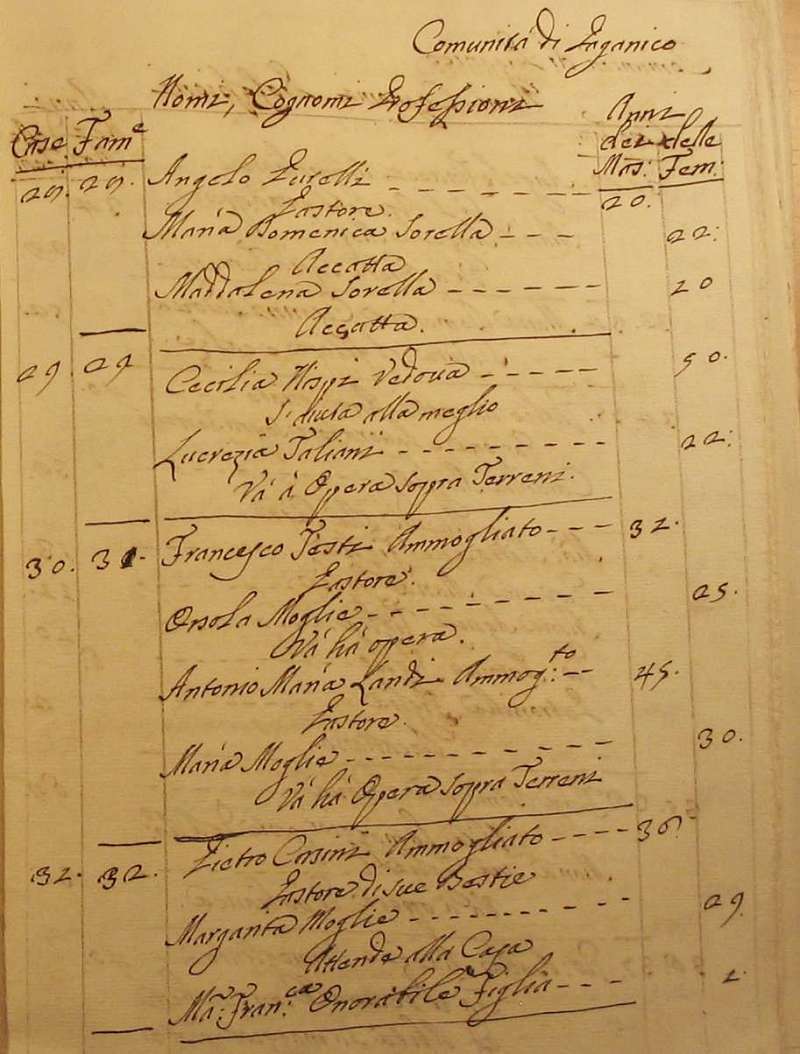 Comunità di Paganico
Nomi, Cognomi Professioni
Anni
Case Fam.e dei delle
Mas: Fem:
29. 29. Angelo Purelli 20.
Pastore.
Maria Domenica Sorella 22:
Accatta
Maddalena Sorella 20
Accatta.
29 29 Cecilia Vedova 50.
S'aiuta alla meglio
Lucrezia Taliani 22:
Và à Opera sopra Terreni.
30. Francesco Testi Ammogliato 32.
Pastore.
Orsola Moglie 25.
Và hà opera.
Antonio Maria Landi Ammog:to 45.
Pastore.
Maria Moglie 30.
Và hà Opera sopra Terreni
32. 32. Pietro Casini Ammogliato 36.
Pastore di sue Bestie
Margarita Moglie 29
Attende alla Casa
Ma: Fran:ca Onorabile Figlia 2.